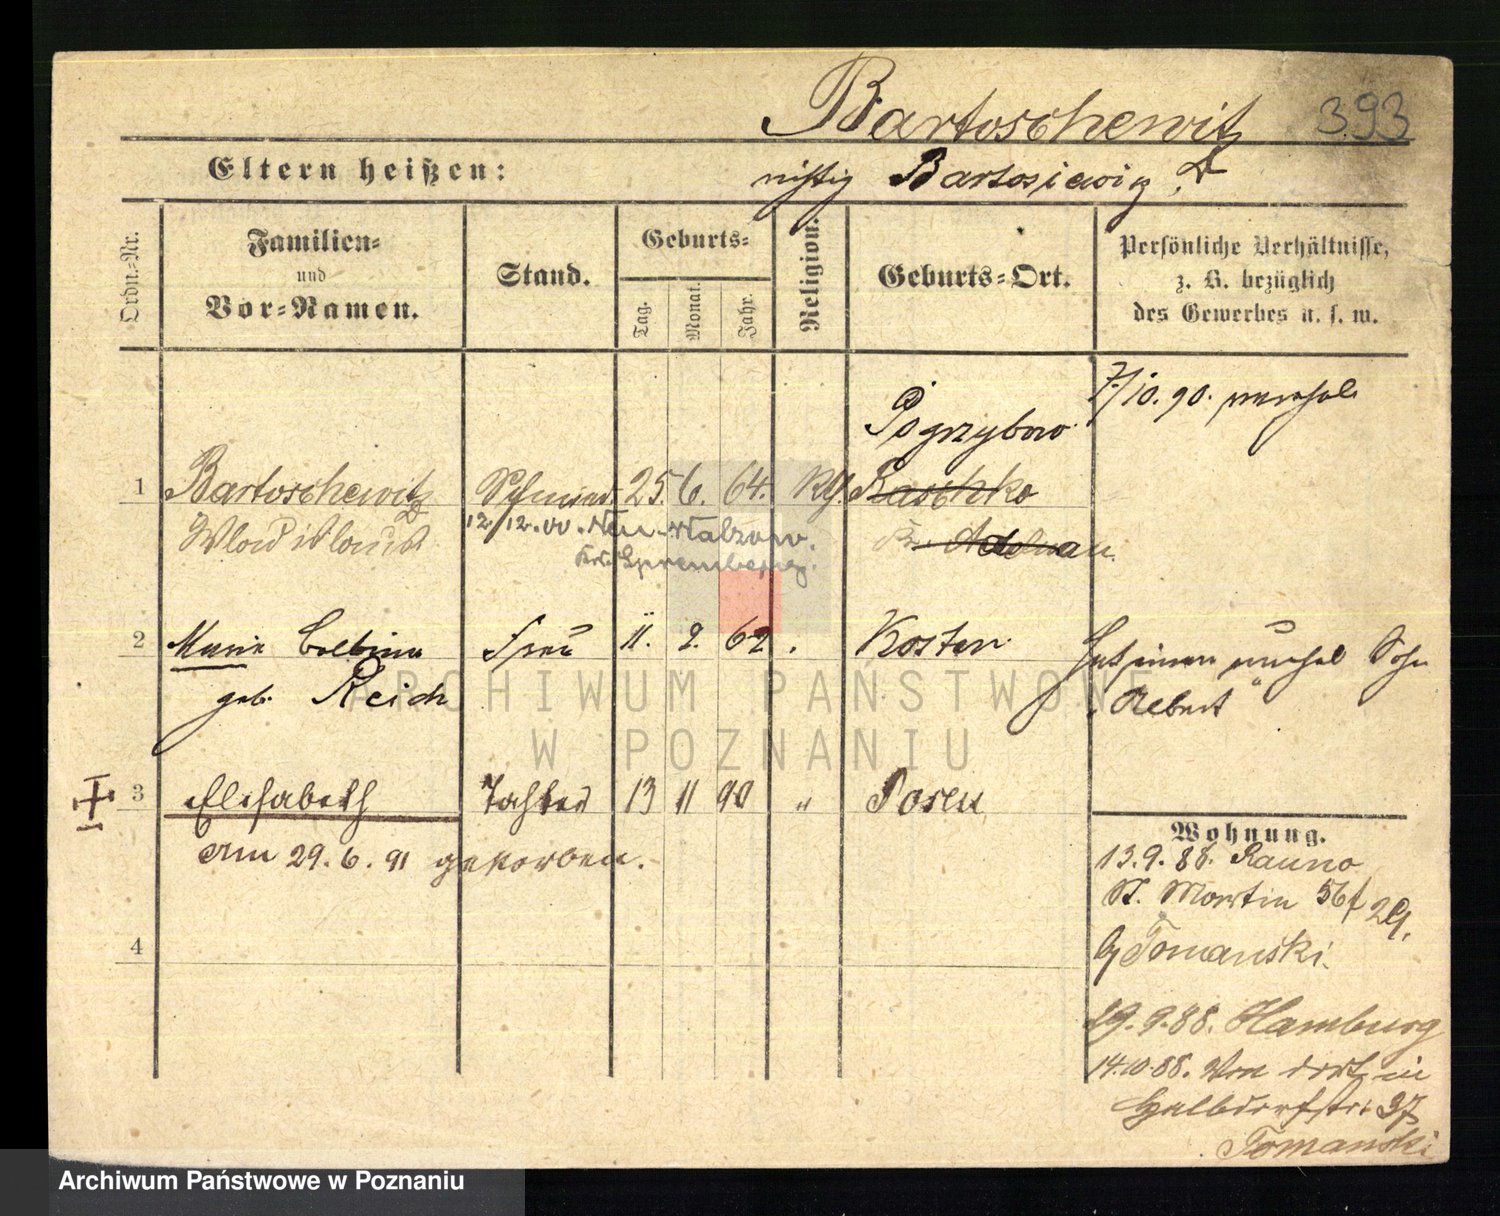 Bartoschewitz 393
Eltern heißen: richtig Bartosiewicz
Ordn.-Nr.
Familien-
und
Vor-Namen.
Stand.
Geburts-
Tag.
Monat.
Jahr.
Religion.
Geburts-Ort.
Persönliche Verhältnisse,
z. B. bezüglich
des Gewerbes u. s. w.
7/10.90. verehel
Pogrzybow
1 Bartoschewitz Schmied 25. 6. 64. Kth. Raschko
Wladislaus
12/12.00. Neu-Welzow.
Krs. Spremberg.
Kr. Adelnau
2 Marie Balbina Frau 11. 2. 62 Kosten Hat einen unehel Sohn
geb. Reich "Albert"
3 Elisabeth Tochter 13 11 90 " Posen
Am 29.6.91 gestorben.
4
Wohnung.
13.9.88. Rauno
St. Martin 56 b
Tomanski.
29.9.88. Hamburg
14.10.88. Von dort in
Halbdorfstr. 37
Tomanski
ARCHIWUM PAŃSTWOWE
W POZNANIU
Archiwum Państwowe w Poznaniu